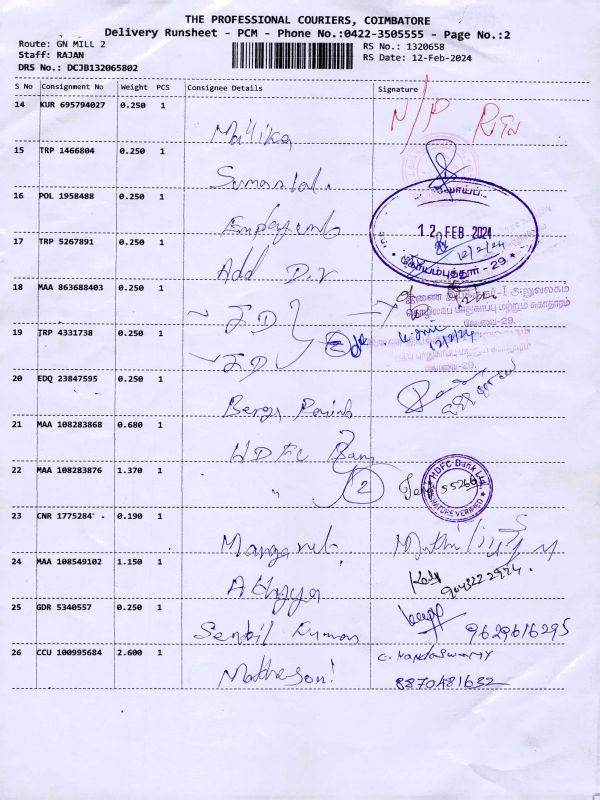 THE PROFESSIONAL COURIERS, COIMBATORE
Delivery Runsheet - PCM - Phone No.:0422-3505555 - Page No.:2
Route: GN MILL 2
RS No.: 1320658
Staff: RAJAN
RS Date: 12-Feb-2024
DRS No.: DCJB132065802
S No Consignment No Weight PCS Consignee Details Signature
14 KUR 695794027 0.250 1 Mallika N/P RTN
15 TRP 1466804 0.250 1
16 POL 1958488 0.250 1
12 FEB 2024
12/2/24
கோயம்புத்தூர் - 29.
17 TRP 5267891 0.250 1 Add D.V
18 MAA 863688403 0.250 1 J.D
இணை இயக்குநர்-I அலுவலகம்
தொழிலகப் பாதுகாப்பு மற்றும் சுகாதாரம்
கோவை-29.
19 TRP 4331738 0.250 1 J.D 2
12/2/24
20 EDQ 23847595 0.250 1
21 MAA 108283868 0.680 1 HDFC Bank
22 MAA 108283876 1.370 1 " 2
HDFC Bank Ltd.
55266
SIGNATURE VERIFIED
23 CNR 1775284 0.190 1
24 MAA 108549102 1.150 1
9043222924.
25 GDR 5340557 0.250 1 Senthil Kumar 9629616295
26 CCU 100995684 2.600 1 Matheson! C. Kandaswamy
8870481632